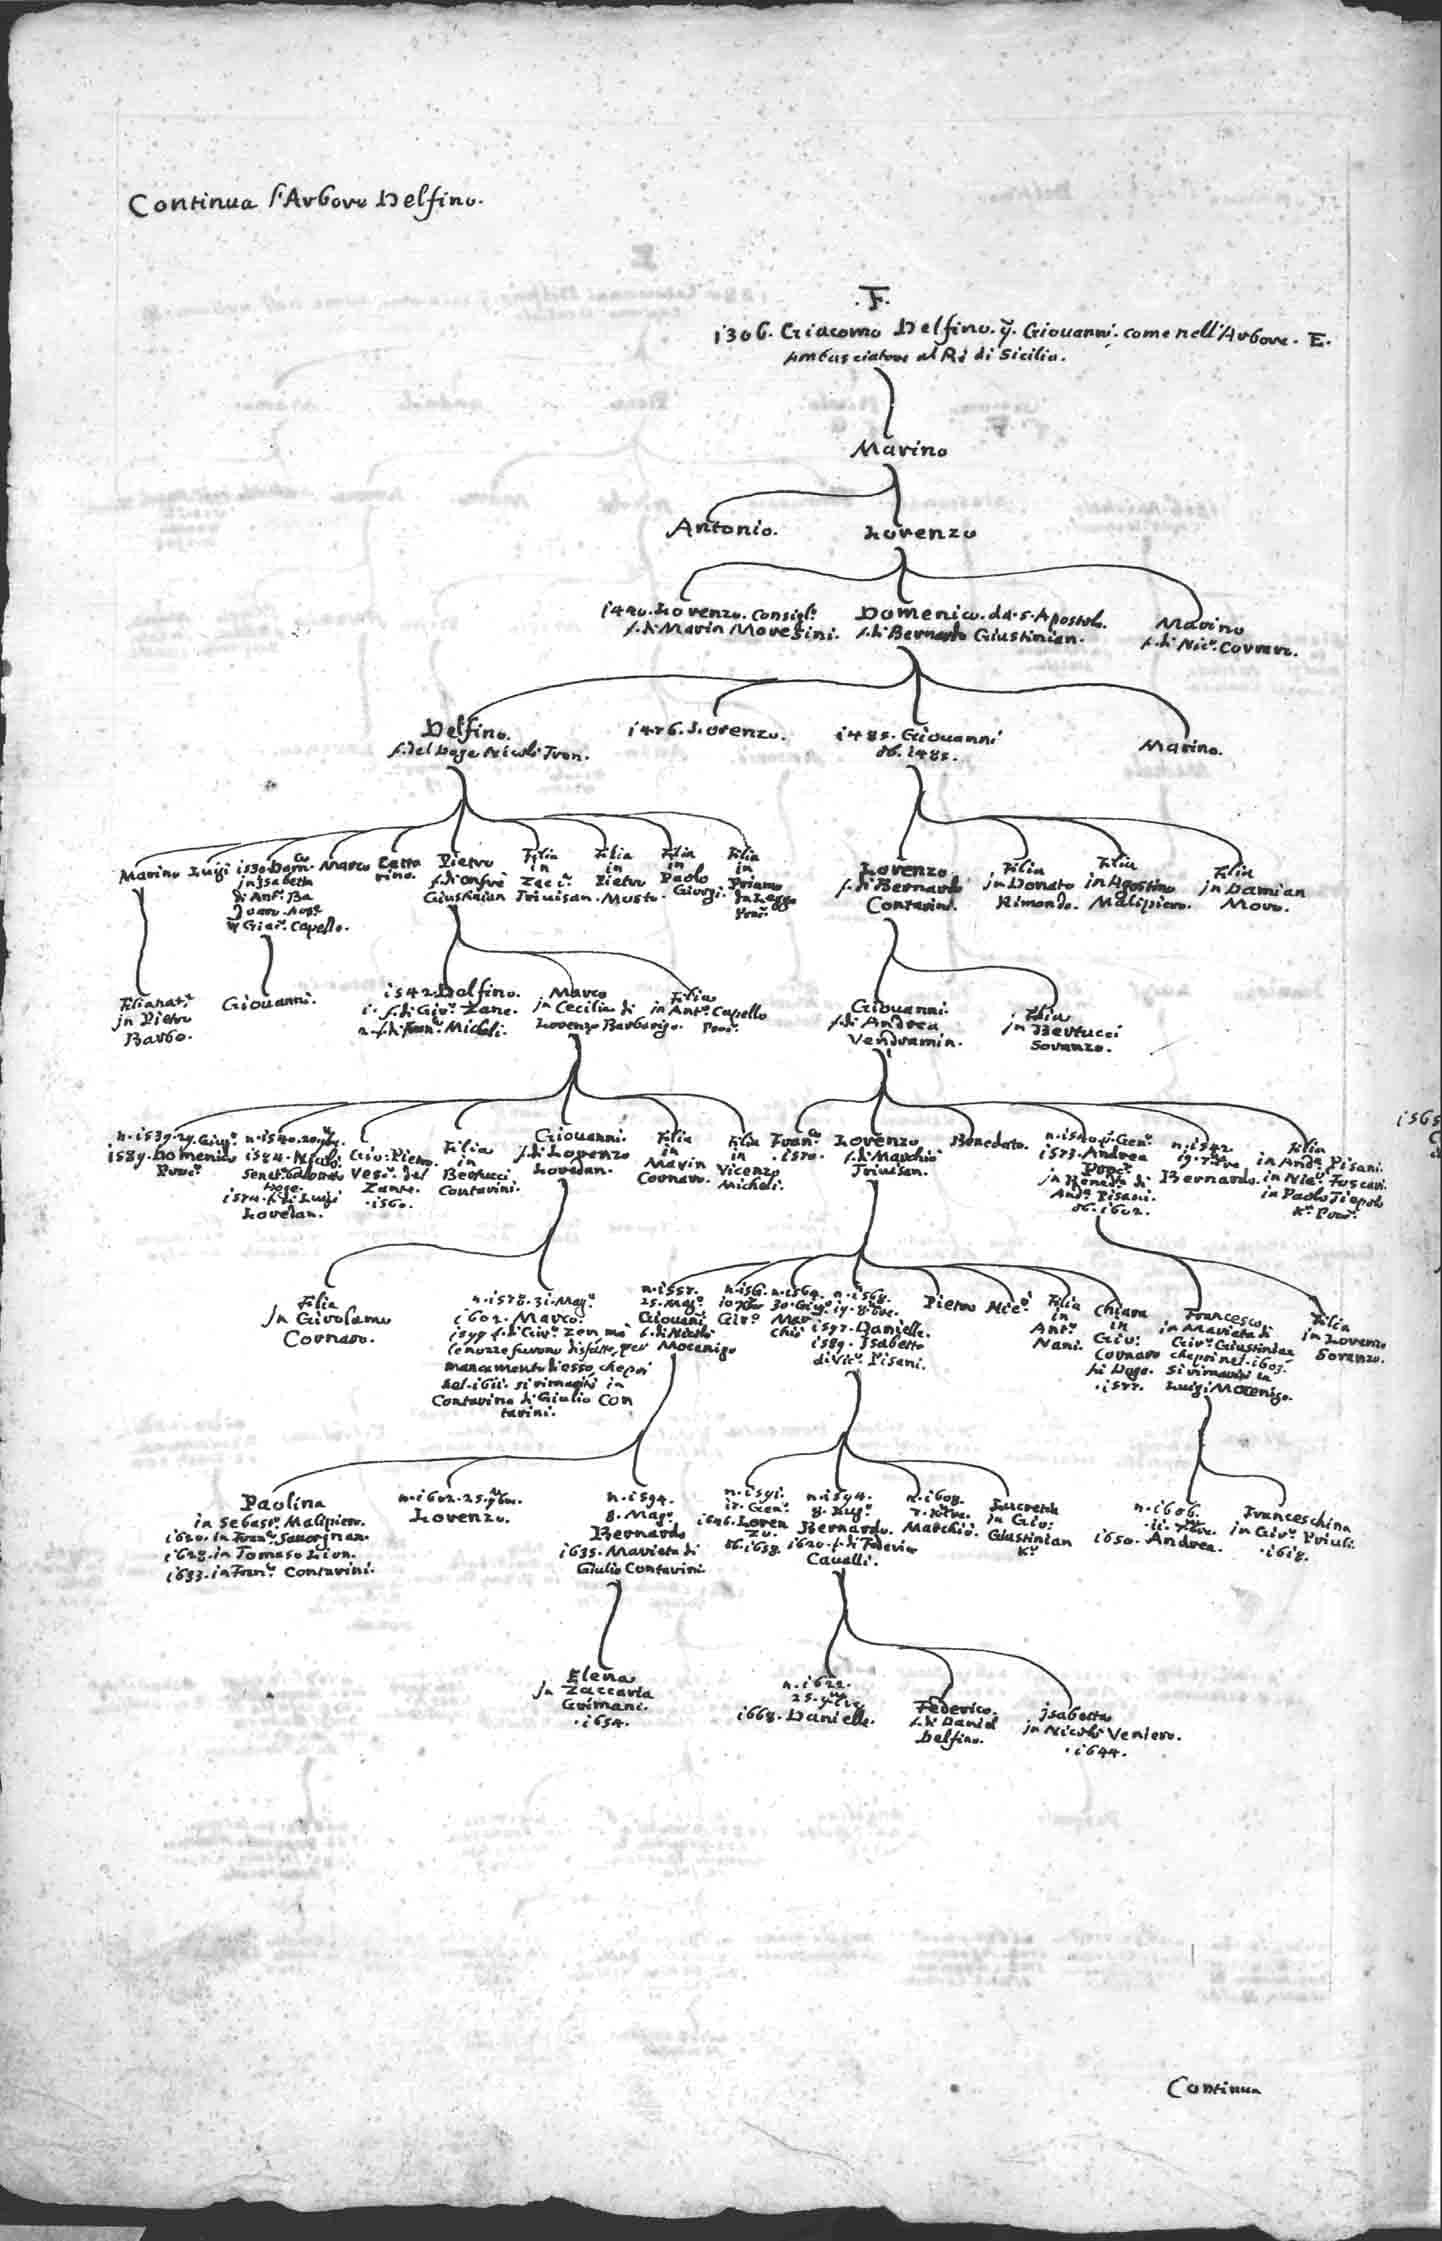 Continua l'Arbore Delfino.
.F.
1306. Giacomo Delfino. q. Giovanni. come nell'Arbore. E.
Ambasciatore al Rè di Sicilia.
Marino
Antonio. Lorenzo
1440. Lorenzo. Consigl:
f. di Marin Moresini.
Domenico. da. S. Apostolo.
f. di Bernardo Giustinian.
Marino
f. di Nic.o Corraro.
Delfino.
f. del Doge Nicolò Tron.
1476. Lorenzo.
1485. Giovanni
ob. 1485.
Marino.
Marino
Luigi
1530. Dom.co
in Isabetta
di Ant.o Ba
q Giac.o Capello.
Marco
Catta
rina.
Pietro
f. di Onfrè
Giustinian
Filia
in
Zacc.a
Trivisan.
Filia
in
Pietro
Mosto.
Filia
in
Paolo
Giorgi.
Filia
in
Priamo
Da Legge
Proc.r
Lorenzo
f. di Bernardo
Contarini.
Filia
in Donato
Rimondo.
Filia
in Agostino
Malipiero.
Filia
in Damian
Moro.
in Pietro
Barbo.
Giovanni.
1542. Dolfino.
1. f. di Gir.o Zane.
2. f. di Fran.o Micheli.
Marco
in Cecilia di
Lorenzo Barbarigo.
Filia
in Ant.o Capello
Proc.r
Giovanni.
f. di Andrea
Vendramin.
Filia
in Bertucci
Soranzo.
n. 1539. 29. Giug.o
1589. Domenico
n. 1540.
1584. Nicolò.
Senat.
1574. f. di Luigi
Loredan.
Gio: Pietro.
Vesc.o del
Zante.
.1560.
Filia
in
Bertucci
Contarini.
Giovanni.
f. di Lorenzo
Loredan.
Filia
in
Marin
Cornaro.
Filia
in
Vicenzo
Micheli.
Fran.co
.1570.
Lorenzo
f. di Marchiò
Trivisan.
Benedato.
1573. Andrea
Proc.r
in Benedta di
And.a Pisani.
ob. 1602.
n. 1542.
19. 7.bre
Bernardo.
Filia
in And.a Pisani.
in Nic.o Foscari.
in Paolo Tiepolo
K.r Proc.r
1565
Filia
in Girolamo
Cornaro.
n. 1578. 31. Mag.o
1602. Marco.
1599 f. di Gir.o Zen ma
le nozze furono disfatte, per
mancamento di esso, che poi
nel. 1611. si rimaritò in
Contarina di Giulio Con
tarini.
n. 1557.
25. Mag.o
Giovani
f. di Nicolò
Mocenigo
Gir.o
30. Giug.o
Mar
chiò
n. 1568.
19. 8.bre.
1597. Danielle.
1589. Isabetta
di Vic.o Pisani.
Pietro
Nic.o
Filia
in
Ant.o
Nani.
Chiara
in
Gio:
Cornaro
fù Doge.
.1577.
Francesco.
in Marieta di
Gir.o Giustinian
che poi nel. 1603.
si rimaritò in
Luigi Mocenigo.
Filia
in Lorenzo
Soranzo.
Paolina
in Sebast.o Malipiero.
1620. in Fran.o Savorgnan.
1628. in Tomaso Lion.
1633. in Fran.o Contarini.
n. 1602. 25. 9bre.
Lorenzo.
n. 1594.
8. Mag.o
Bernardo
1635. Marieta di
Giulio Contarini.
n. 1591.
15. Gen.o
1646. Loren
zo.
ob. 1659.
n. 1594.
8. Aug.o
Bernardo.
1620. f. di Federico
Cavalli.
n. 1608.
7. Xbre.
Marchiò.
Lucretia
in Gio:
Giustinian
K.r
n. 1606.
1650. Andrea.
Franceschina
in Gir.o Priuli.
.1618.
Elena
in Zaccaria
Grimani.
.1654.
n. 1622.
25. 9bre
1668. Danielle.
Federico.
f. di Daniel
Delfino.
Isabetta
in Nicolò Veniero.
.1644.
Continua